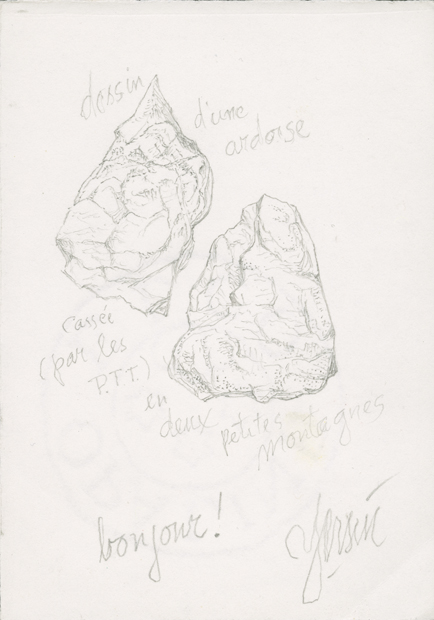 dessin
d'une
ardoise
cassée
(par les
P.T.T.)
en
deux
petites
montagnes
bonjour!
Yersin